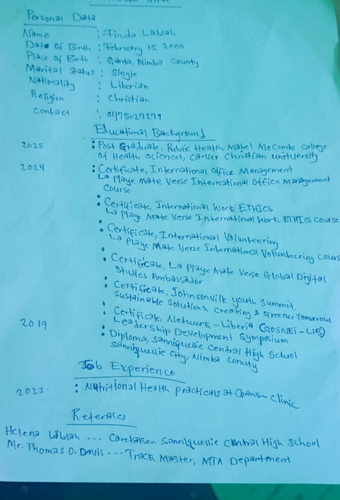 Personal Data
Name : Finda Lablah
Date of Birth : February 15, 2000
Place of Birth : Ganta, Nimba County
Marital Status : Single
Nationality : Liberian
Religion : Christian
Contact :
Educational Background
2025 : Post Graduate, Public Health, Mabel McCombs College
of Health Sciences, Carver Christian University
2024 : Certificate, International Office Management
La Playe Mate Verse International Office Management
Course
• Certificate, International Work ETHICS
La Playe Mate Verse International Work ETHICS Course
• Certificate, International Volunteering
La Playe Mate Verse International Volunteering Course
• Certificate, La Playe Mate Verse Global Digital
Studies Ambassador
• Certificate, Johnsonville Youth Summit
Sustainable Solutions, Creating a Greener Tomorrow
• Certificate, Network - Liberia
Leadership Development Symposium
2019 • Diploma, Sanniquellie Central High School
Sanniquellie City, Nimba County
Job Experience
: Nutritional Health practicals at Clinic
References
Helena Lablah --- Caretaker Sanniquellie Central High School
Mr. Thomas D. Davis --- Track Master, MTA Department